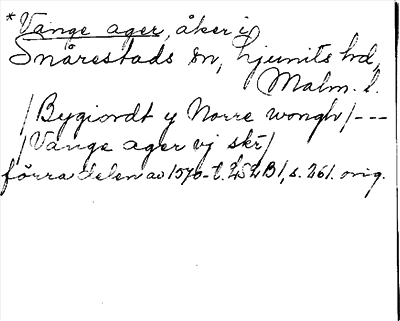 *Vange ager, åker i
Snårestads sn, Ljunits hd,
Malm. l.
/Bygiordt y Norre wongh/---
/Vange ager vj skr/
förra delen av 1570-t. 252 B1, s. 261. orig.